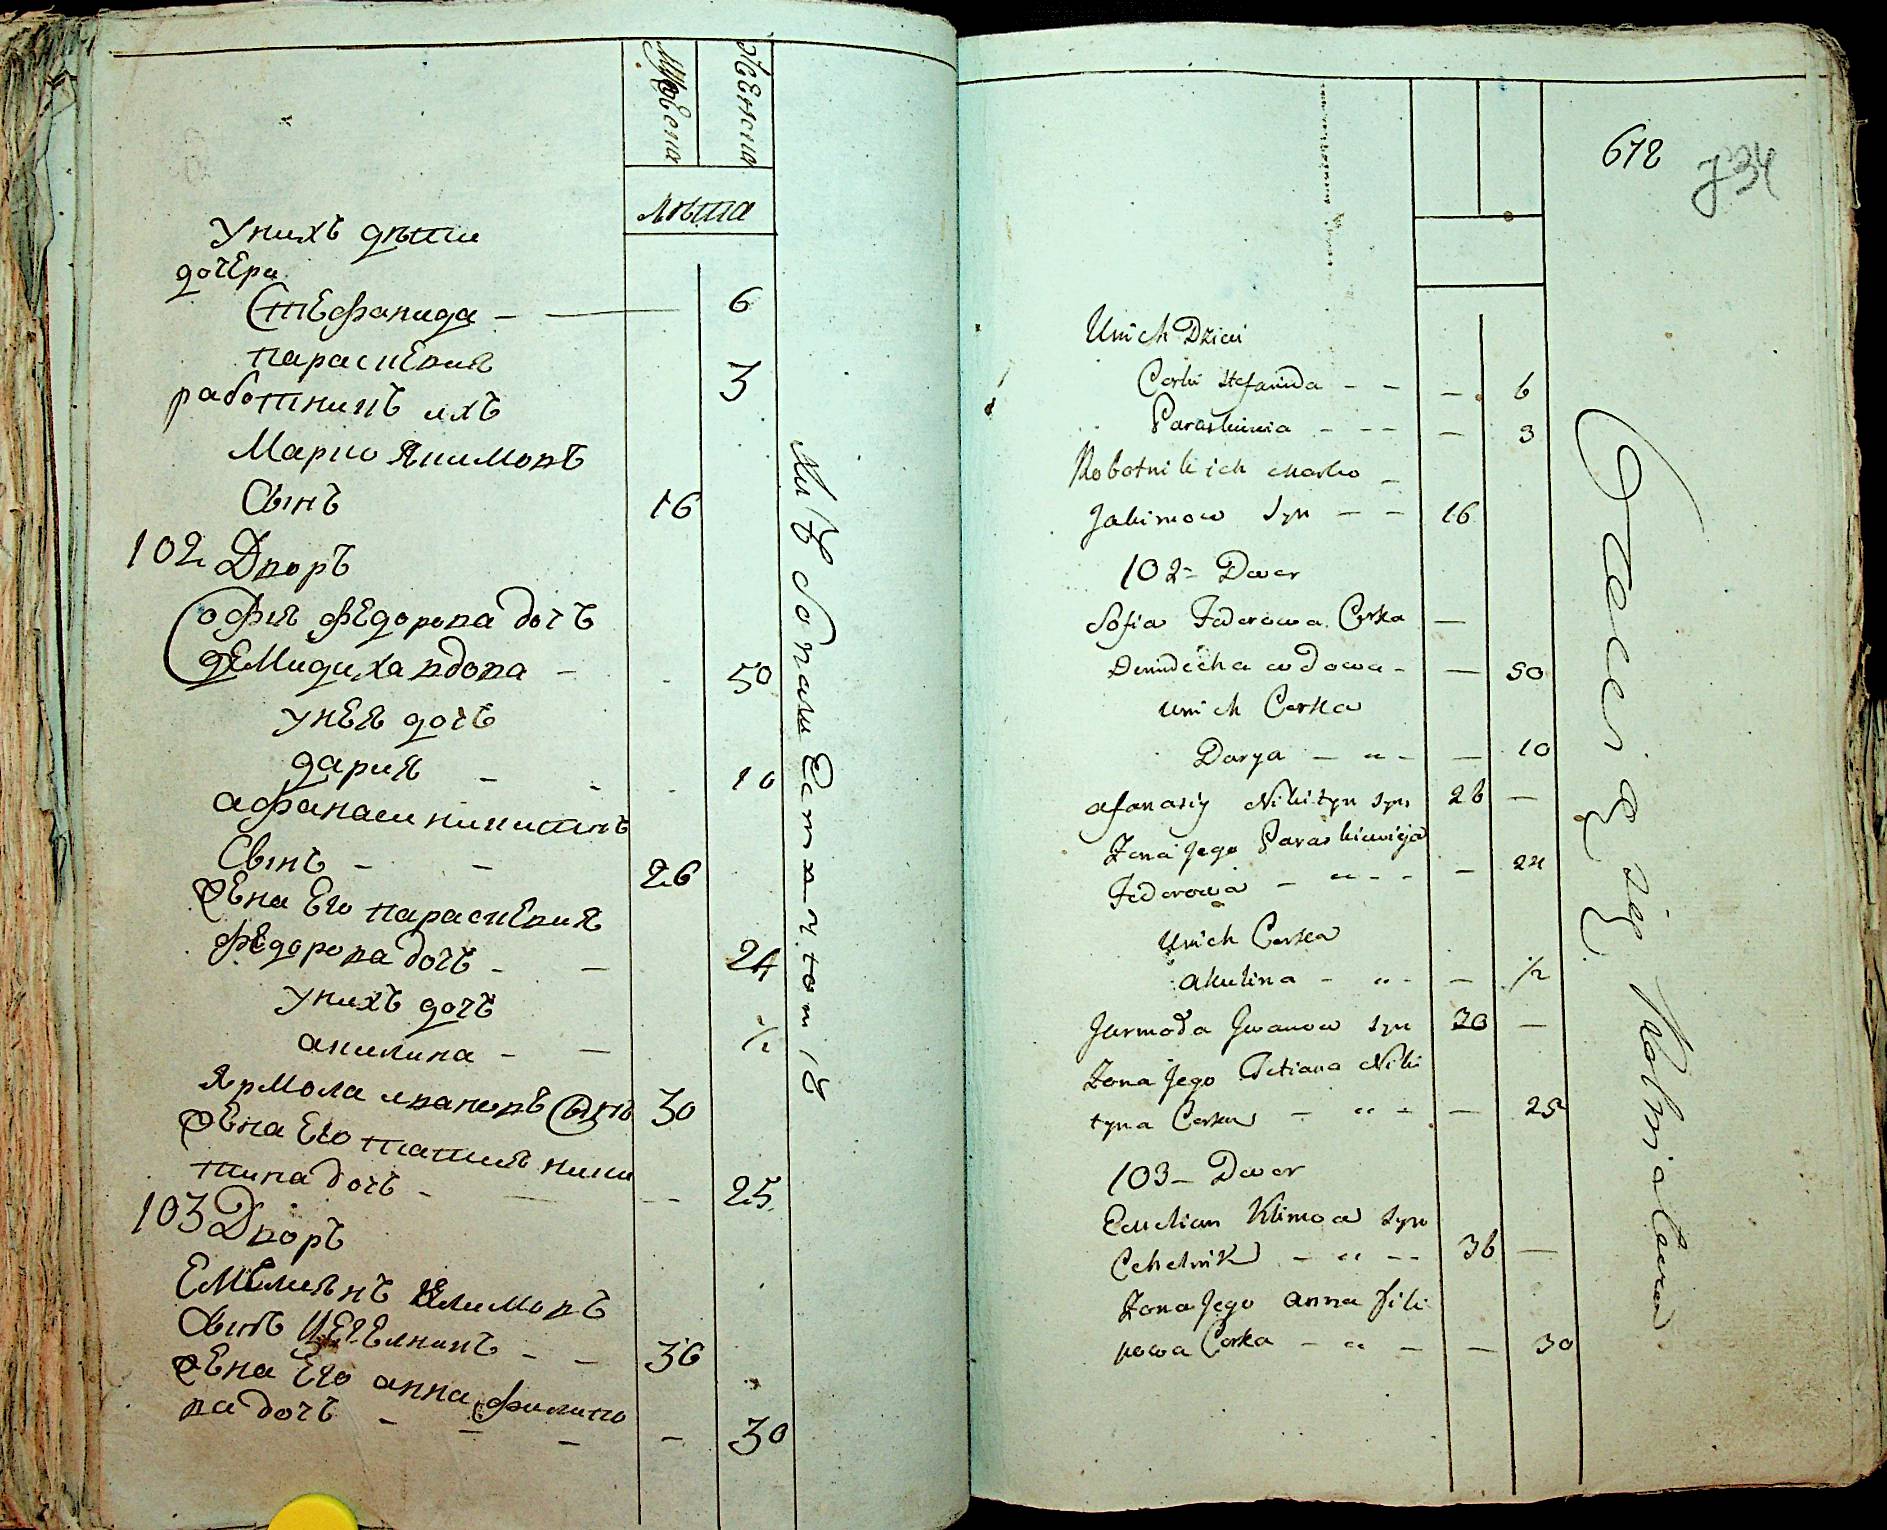 Мужеска
Женска
Лѣта
У нихъ дѣти
дочери
Стефанида — — 6
Параскевия 3
работникъ ихъ
Марко Якимовъ
Сынъ 16
102 Дворъ
Софія Федорова дочь
Демидиха вдова — 50
У нея дочь
Дария — 10
Афанаси Никитинъ
Сынъ — — 26
Жена Его Параскевия
Федорова дочь — — 24
У нихъ дочь
Акилина — — 1/2
Ярмола Ивановъ Сынъ 30
Жена Его Татия Ники
тина дочь — — 25
103 Дворъ
Емелиянъ Климовъ
Сынъ Цегелникъ — — 36
Жена Его Анна Филипо
ва дочь — — — — 30
672
734
Unich Dzieci
Corki Stefanida — — — 6
Paraskiewia — — — — 3
Robotnik ich Marko —
Jakimow Syn — — 16
102 — Dwor
Sofia Federowa Corka —
Demidicha wdowa — — 50
unich Corka
Darya — „ — — 10
Afanasiy Nikityn Syn 26 —
Zona Jego Paraskiewieja
Federowa — „ — — — 24
Unich Corka
Akulina — „ — — 1/2
Jarmoła Jwanow Syn 30 —
Zona Jego Tetiana Niki
tyna Corka — „ — — 25
103 — Dwor
Emelian Klimow Syn
Cehelnik — „ — — 36 —
Zona Jego Anna Fili
powa Corka — „ — — 30